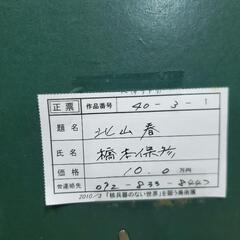 正票 作品番号 40-3-1
題名 北山春
氏名 橋本保彦
価格 10.0 万円
世連絡先 092-833-8447
2010/3「核兵器のない世界」を願う美術展